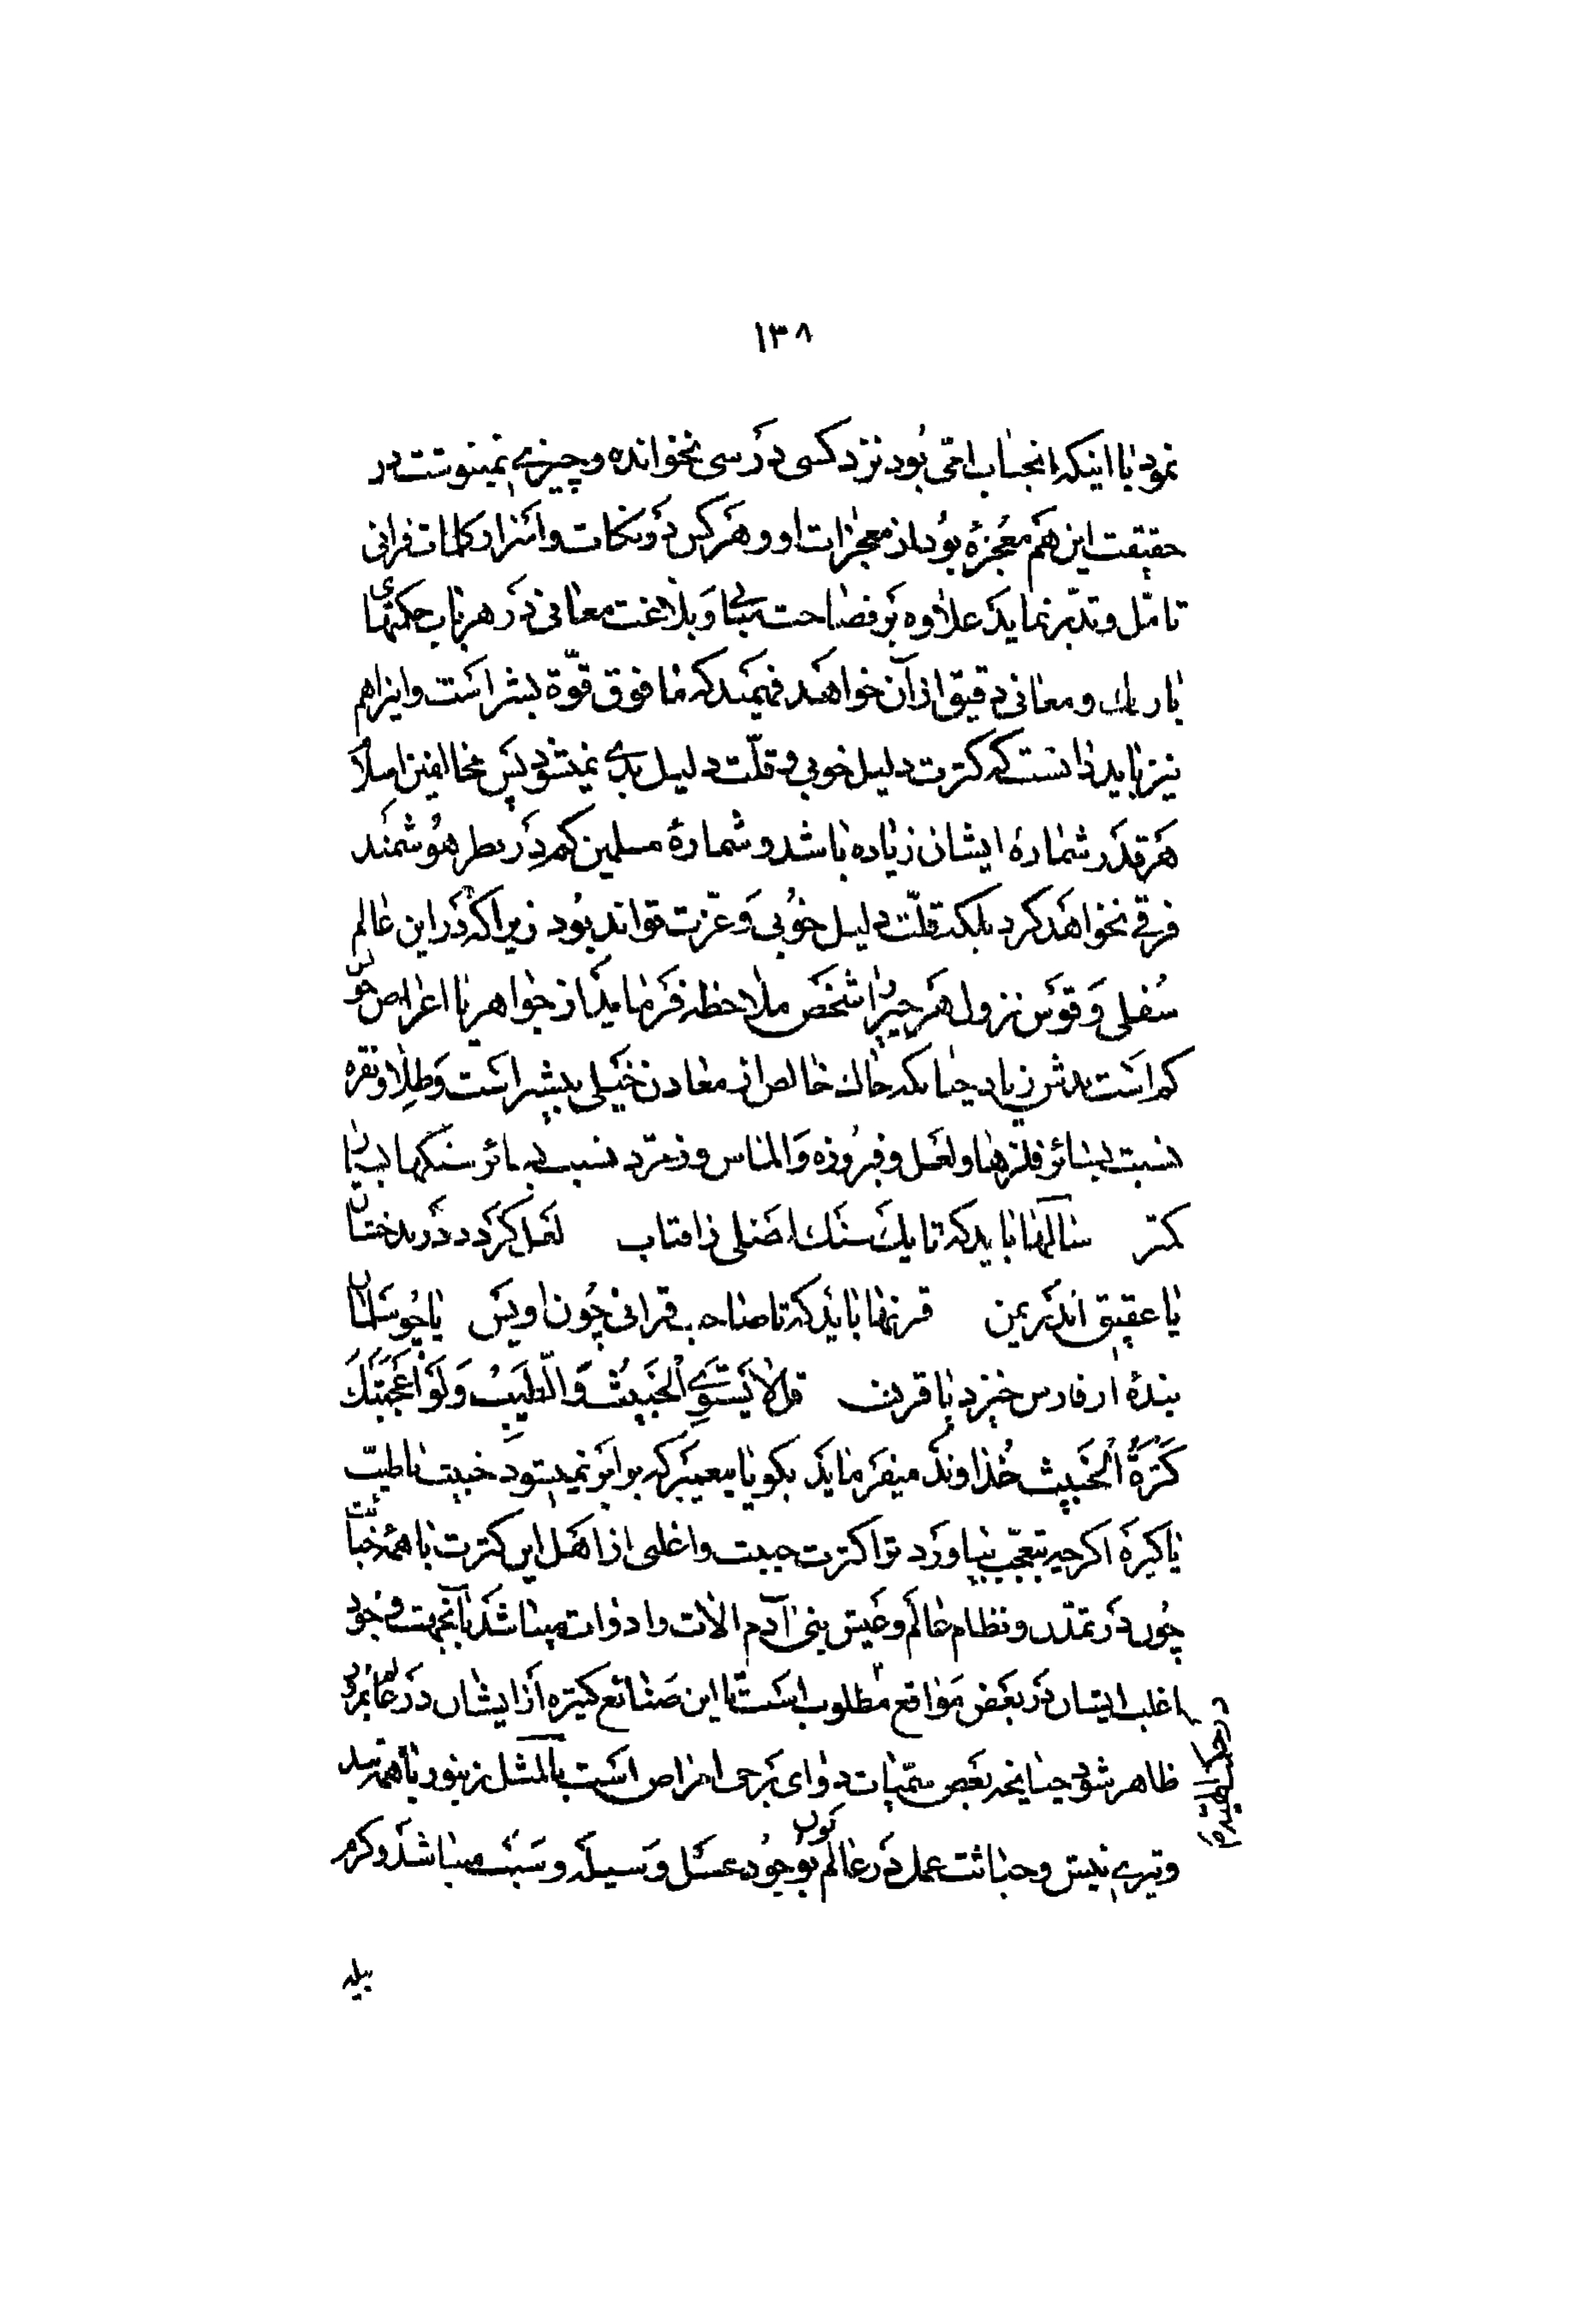 ۱۳۸
نمود با اینکه انجناب امّی بُود نزد کسی دَرسی نخوانده و چیزے نمینوشت در
حقیقت این هَم معُجزهٔ بوُد از معجزات او و هَر کس دَر نکات و اسَرار کلمات قرانی
تامّل و تدّبر نماید علاوه بَر فصاحت مبانی وَ بلاغت معانی دَر هر باب حکمتهای
باریك و معانی دقیق از آن خواهَد فهمَید که مٰا فوق قوّة بشر اسَت و اینراهم
نیز باید دانست که کثرت دلیل خوبی و قلّت دلیل بدے نمیشود پَس مخالفین اسلاَم
هَر قدَر شمٰارهٔ ایشان زیاده باشد و شمارهٔ مسلمین کم دَر نظر هوُشمَند
فرقے نخواهَد کرد بلکه قلّت دلیل خوُبی وَ عّزت تواند بوُد زیرا که دَر این عٰالم
سُفلی وَ قوَس نزول هَر چیز را شخَص ملاحظه فَرمٰاید از جواهر یا اعراض خوبش
کم اسَت بدش زیاد چنانکه خاك خالص از معادن خَیلی بیشتر اسَت وَ طِلا و نقره
نسبت بسٰائر فلزهٰا و لعَل و فیرُوزه وَ الماس و زمّرد نسبت به سائر سنکها بسیٰار
کمتر سالهٰا بٰاید که تا یكَ سنَك اصَلی ز افتاب لعَل کَردد دَر بدخشان
یٰا عقیق اندَر یمن قرنهٰا بٰایَد که تا صٰاحب قرانی چُون اویسَ یٰا چوُ سَلمان
بندهٔ از فارس خیزد یٰا قرن قل لاٰ یَسَتوَے الْخَبیثُ وَ الَّطیِّبُ وَ لَوْ اَعْجَبَكَ
کَثرَةُ الْخَبیث خُداوند میفَرمٰایَد بکو یٰا پیغمبَر که برابَر نمیشود خبیث با طیّب
پٰاکیزَه اکر چه بتعجّب بیٰاورَد تو را کثرت خبیث و اغلبی از اهَل این کثرت با همهٔ خباثت
چوُن دَر تمدّن و نظام عٰالَم و عَیش بنی آدم الاٰت و ادوات میبٰاشَد بآنجهت وجوُد
اغلب ایشان دَر بعَض مَواقع مطلوب اسَت تٰا این صَنٰائع کثیره اَز ایشٰان دَر عٰالم
ظاهر شوَد چنانچه بعَض سمیّات دوٰای برَخی امراض اسَت بالمَثل زنبور با همهٔ
و تیزے نیش و خباثت عمل دَر عٰالم کون بوُجوُد عسَل وَسیله و سَبَب میبٰاشَد و کرم
پیله